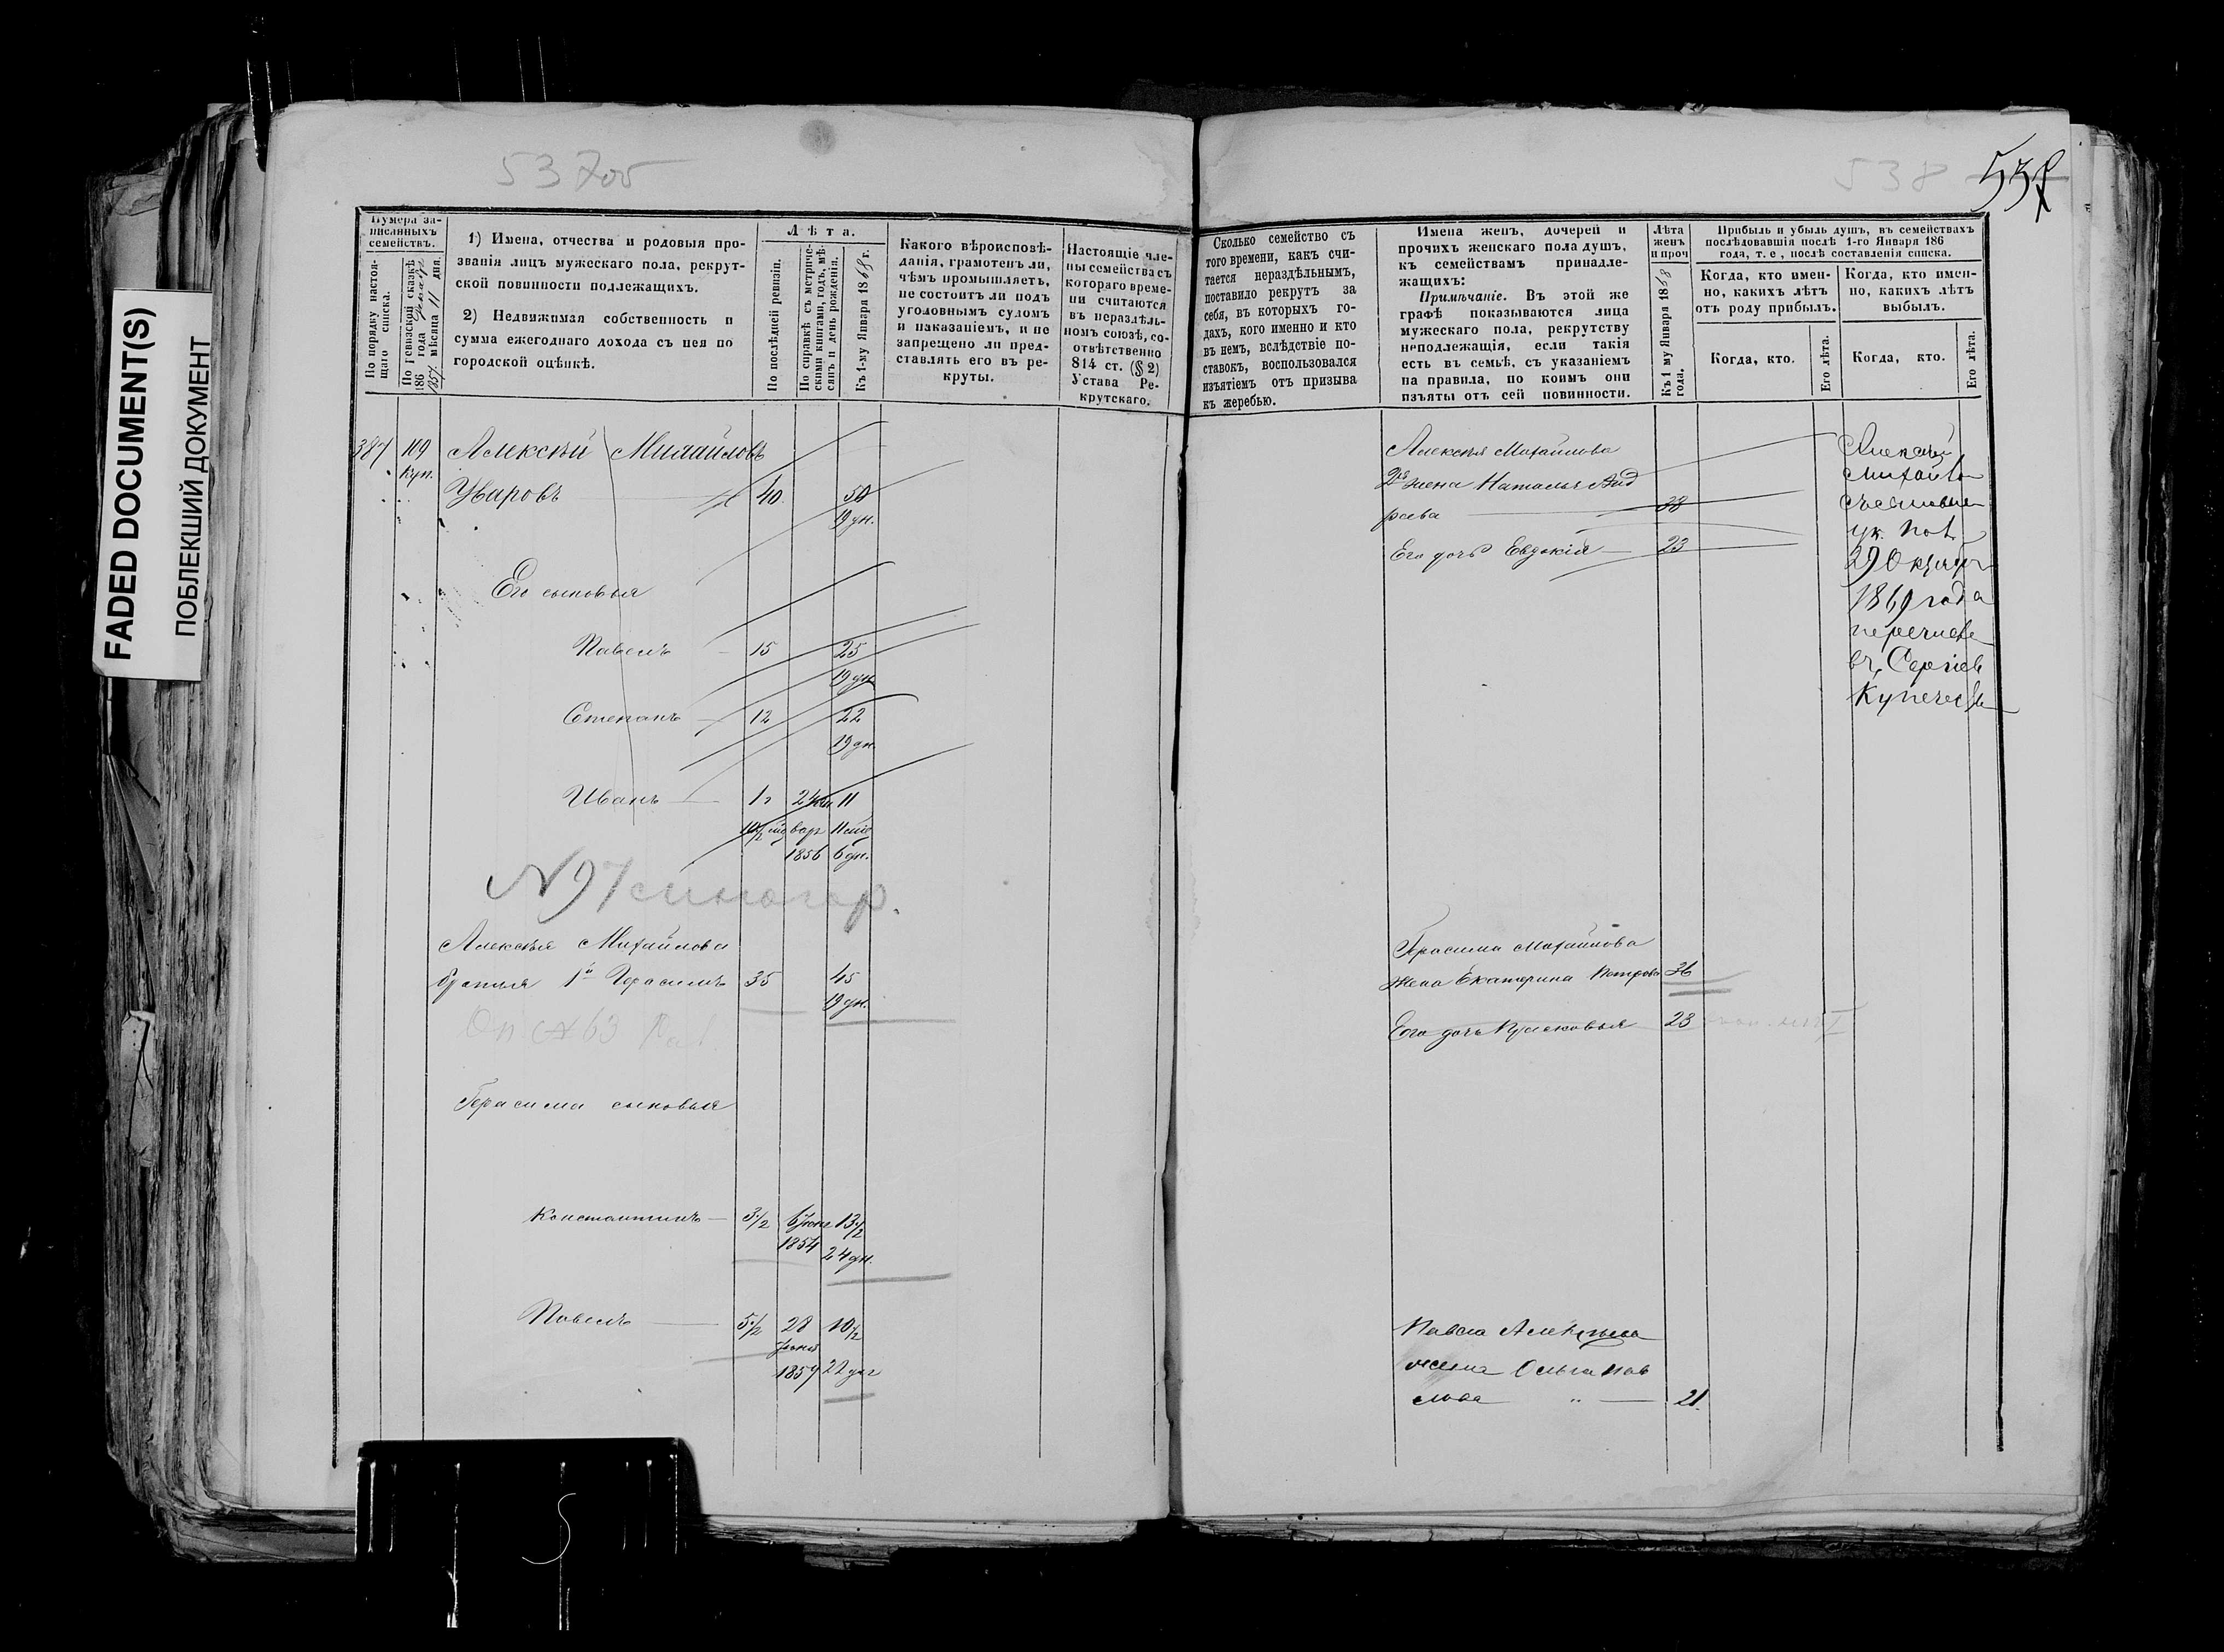 FADED DOCUMENT(S)
ПОБЛЕКШИЙ ДОКУМЕНТ
537об
Нумера за-
писанныхъ
семействъ.
По порядку настоя-
щаго списка.
По ревизской сказкѣ
186 года
1857. мѣсяца 11 дня.
1) Имена, отчества и родовыя про-
званія лицъ мужескаго пола, рекрут-
ской повинности подлежащихъ.
2) Недвижимая собственность и
сумма ежегоднаго дохода съ нея по
городской оцѣнкѣ.
Лѣта.
По послѣдней ревизіи.
По справкѣ съ метриче-
скими книгами, годъ, мѣ-
сяцъ и день рожденія.
Къ 1-му Января 1868 г.
Какого вѣроисповѣ-
данія, грамотенъ ли,
чѣмъ промышляетъ,
не состоитъ ли подъ
уголовнымъ судомъ
и наказаніемъ, и не
запрещено ли пред-
ставлять его въ ре-
круты.
Настоящіе чле-
ны семейства съ
котораго време-
ни считаются
въ нераздѣль-
номъ союзѣ, со-
отвѣтственно
814 ст. (§ 2)
Устава Ре-
крутскаго.
387 109 Алексѣй Михайловъ
куп.
Уваровъ 40. 50
19 дн.
Его сыновья
Павелъ 15 25
19 дн.
Степанъ 12 22
19 дн.
Иванъ 1 24 11
1856 6 дн.
N 97
Алексѣя Михайлова
братья 1й Герасимъ 35 45
19 дн.
Герасима сыновья
Константинъ 3½ 6 Іюня 13½
1854 24 дн.
Павелъ 5½ 28 10½
1857 22 дня
538 537
Сколько семейство съ
того времени, какъ счи-
тается нераздѣльнымъ,
поставило рекрутъ за
себя, въ которыхъ го-
дахъ, кого именно и кто
въ немъ, вслѣдствіе по-
ставокъ, воспользовался
изъятіемъ отъ призыва
къ жеребью.
Имена женъ, дочерей и
прочихъ женскаго пола душъ,
къ семействамъ принадле-
жащихъ:
Примѣчаніе. Въ этой же
графѣ показываются лица
мужескаго пола, рекрутству
неподлежащія, если такія
есть въ семьѣ, съ указаніемъ
на правила, по коимъ они
изъяты отъ сей повинности.
Лѣта
женъ
и проч
Къ 1 му Января 1868
года.
Прибыль и убыль душъ, въ семействахъ
послѣдовавшія послѣ 1-го Января 186
года, т. е., послѣ составленія списка.
Когда, кто имен-
но, какихъ лѣтъ
отъ роду прибылъ.
Когда, кто имен-
но, какихъ лѣтъ
выбылъ.
Когда, кто.
Его лѣта.
Когда, кто.
Его лѣта.
Алексѣя Михайлова
2я жена Наталья Анд
реева 38
Его дочь Евдокія 23
Алексѣй
Михайло
съ сыновьями
ук.
29 Октября
1869 года
перечисле
въ Сергіев
купечество
Герасима Михайлова
жена Екатерина Петрова 36
Его дочь Прасковья 23
Павла Алексѣева
жена Ольга Пав
лова 21.